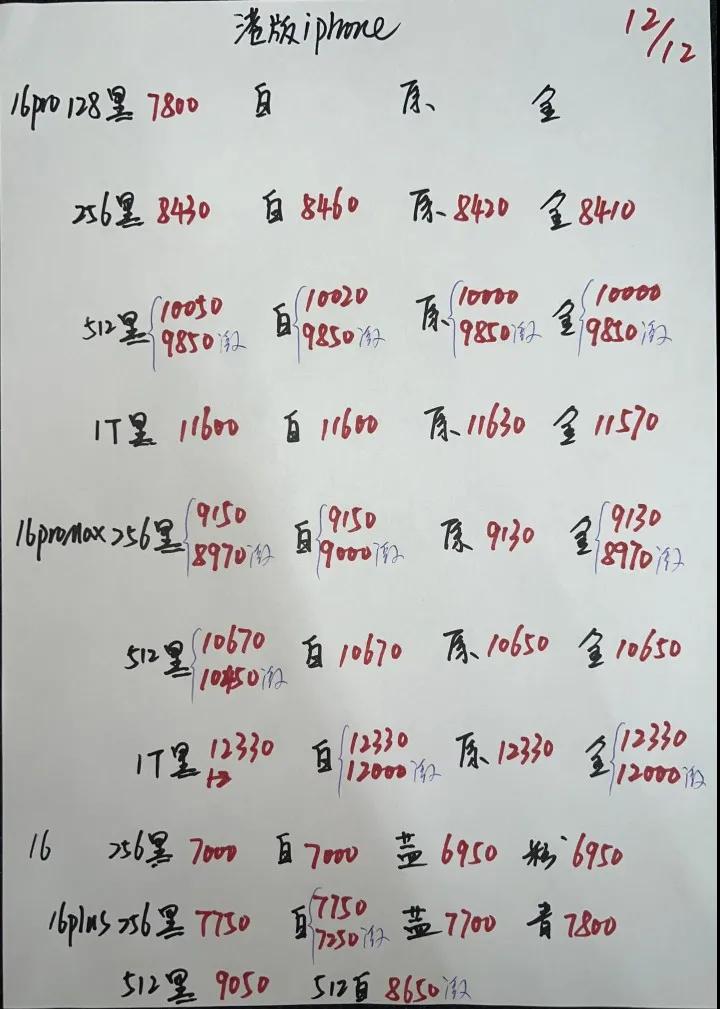 港版iphone
12/12
16pro 128黑 7800 白 原 金
256黑 8430 白 8460 原 8420 金 8410
512黑 10050 白 10020 原 10000 金 10000
9850激 9850激 9850激 9850激
1T黑 11600 白 11600 原 11630 金 11570
16promax 256黑 9150 白 9150 原 9130 金 9130
8970激 9000激 8970激
512黑 10670 白 10670 原 10650 金 10650
激
1T黑 12330 白 12330 原 12330 金 12330
12 12000激 12000激
16 256黑 7000 白 7000 蓝 6950 粉 6950
16plus 256黑 7750 白 7750 蓝 7700 青 7800
7250激
512黑 9050 512白 8650激